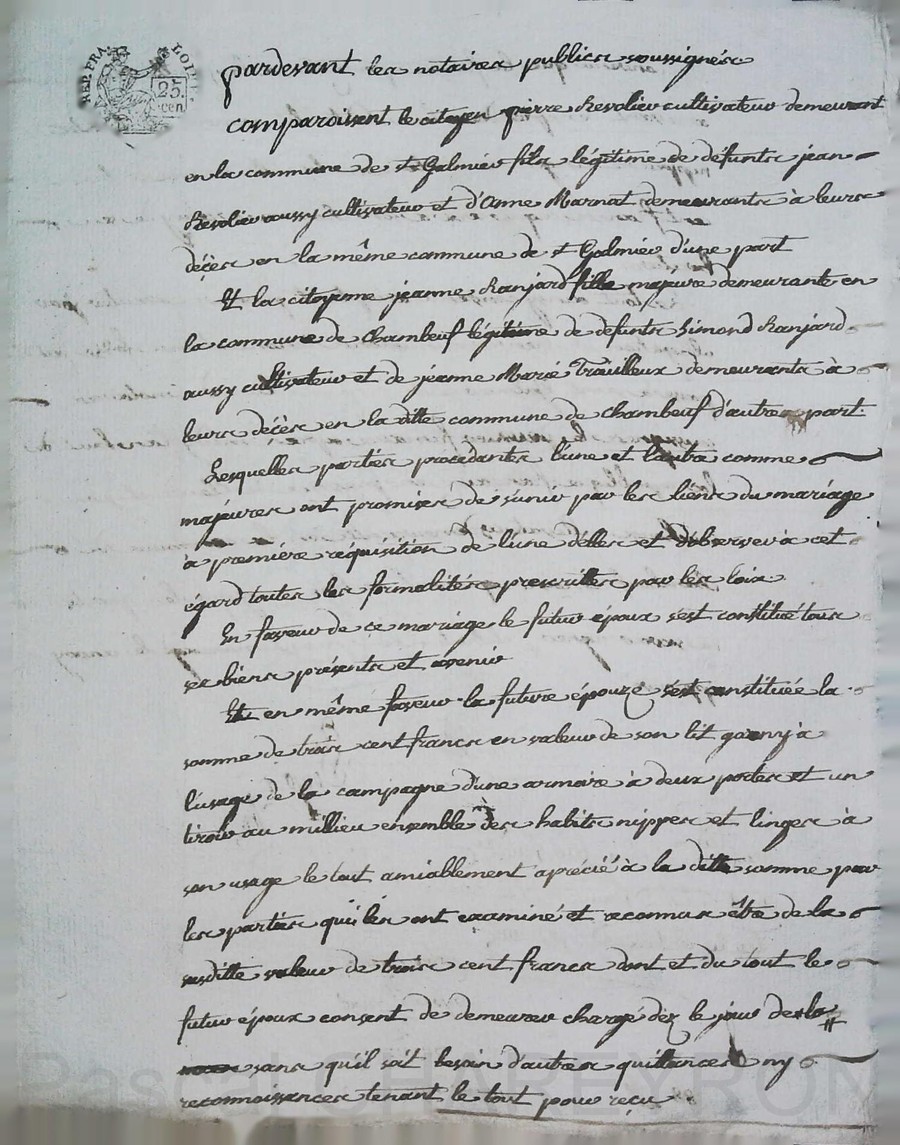 REP. FRA. LOI
25. cen.
pardevant les notaires publics soussignés
comparoissent le citoyen pierre Revolier cultivateur demeurant
en la commune de st Galmier fils légitime de défunts jean
Revolier aussy cultivateur et d'Anne Marnat demeurants à leurs
décès en la même commune de st Galmier d'une part
Et la citoyene jeanne Ranjard fille majeure demeurante en
la commune de Chambeuf légitime de défunts Simond Ranjard
aussy cultivateur et de jeanne Marie Trouilleux demeurants à
leurs décès en la ditte commune de chambeuf d'autre part.
Lesquelles parties procedantes l'une et l'autre comme
majeures ont promises de s'unir par les liens du mariage
à première réquisition de l'une d'elles et d'observer à cet
égard toutes les formalités prescrittes par les loix.
En faveur de ce mariage le futur époux s'est constitué tous
ses biens présents et avenir
Et en même faveur la future épouze s'est constituée la
somme de trois cent francs en valeur de son lit garny à
l'usage de la campagne d'une armoire à deux portes et un
tiroir au millieu ensemble des habits nippes et linges à
son usage le tout amiablement aprécié à la ditte somme par
les parties qui les ont examiné et reconnus être de la
susditte valeur de trois cent francs dont et du tout le
futur époux consent de demeurer chargé dez le jour de la #
sans qu'il soit besoin d'autres quittances ny
reconnoissances tenant le tout pour reçu